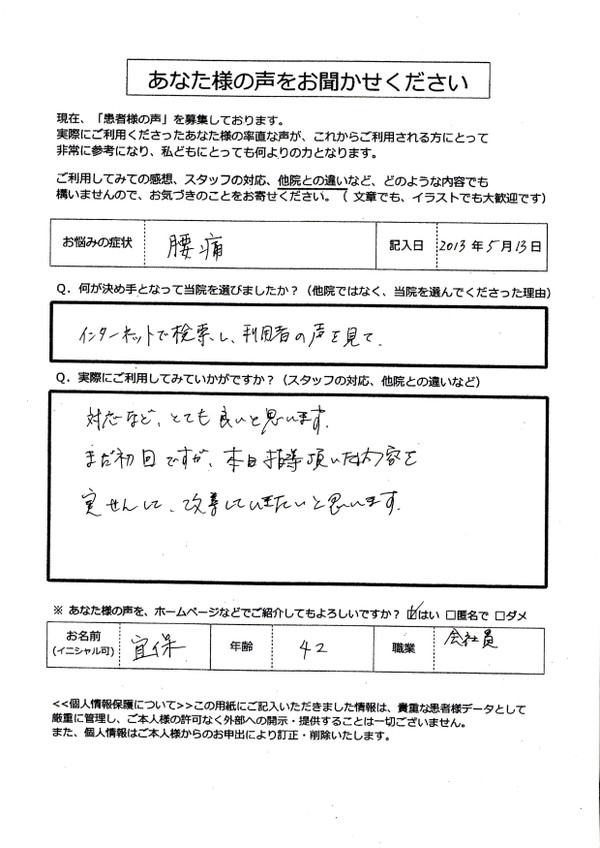 あなた様の声をお聞かせください
現在、「患者様の声」を募集しております。
実際にご利用くださったあなた様の率直な声が、これからご利用される方にとって
非常に参考になり、私どもにとっても何よりの力となります。
ご利用してみての感想、スタッフの対応、他院との違いなど、どのような内容でも
構いませんので、お気づきのことをお寄せください。（ 文章でも、イラストでも大歓迎です）
お悩みの症状 腰痛 記入日 2013年5月13日
Q．何が決め手となって当院を選びましたか？（他院ではなく、当院を選んでくださった理由）
インターネットで検索し、利用者の声を見て．
Q．実際にご利用してみていかがですか？（スタッフの対応、他院との違いなど）
対応など、とても良いと思います．
まだ初回ですが、本日指導頂いた内容を
実せんして、改善していきたいと思います．
※ あなた様の声を、ホームページなどでご紹介してもよろしいですか？ ☑はい □匿名で □ダメ
お名前 宜保 年齢 42 職業 会社員
(イニシャル可)
<<個人情報保護について>>この用紙にご記入いただきました情報は、貴重な患者様データとして
厳重に管理し、ご本人様の許可なく外部への開示・提供することは一切ございません。
また、個人情報はご本人様からのお申出により訂正・削除いたします。